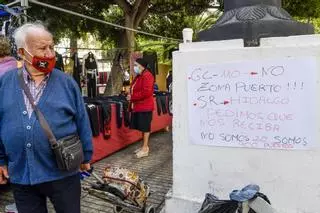 GC-MO → NO
ZONA PUERTO!!!
SR → HIDALGO
PEDIMOS QUE NOS
RECIBA
NO SOMOS 20 SOMOS
300 PUESTOS